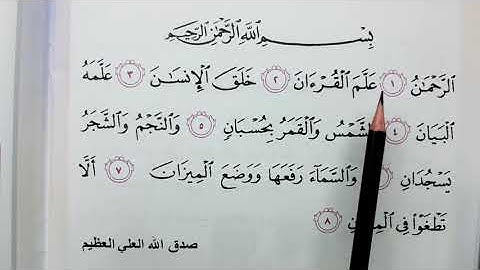 بِسْمِ اللَّهِ الرَّحْمَٰنِ الرَّحِيمِ
الرَّحْمَٰنُ ١ عَلَّمَ الْقُرْءَانَ ٢ خَلَقَ الْإِنسَٰنَ ٣ عَلَّمَهُ
الْبَيَانَ ٤ شَّمْسُ وَالْقَمَرُ بِحُسْبَانٍ ٥ وَالنَّجْمُ وَالشَّجَرُ
يَسْجُدَانِ وَالسَّمَاءَ رَفَعَهَا وَوَضَعَ الْمِيزَانَ ٧ أَلَّا
تَطْغَوْا فِي ٨
صدق الله العلي العظيم